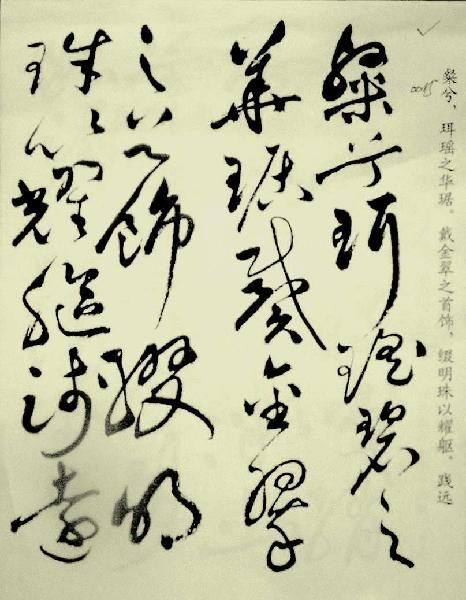 粲兮，珥瑶之华琚。戴金翠之首饰，缀明珠以耀躯。践远
粲兮珥瑤碧之
華琚戴金翠
之首飾綴明
珠以耀軀踐遠